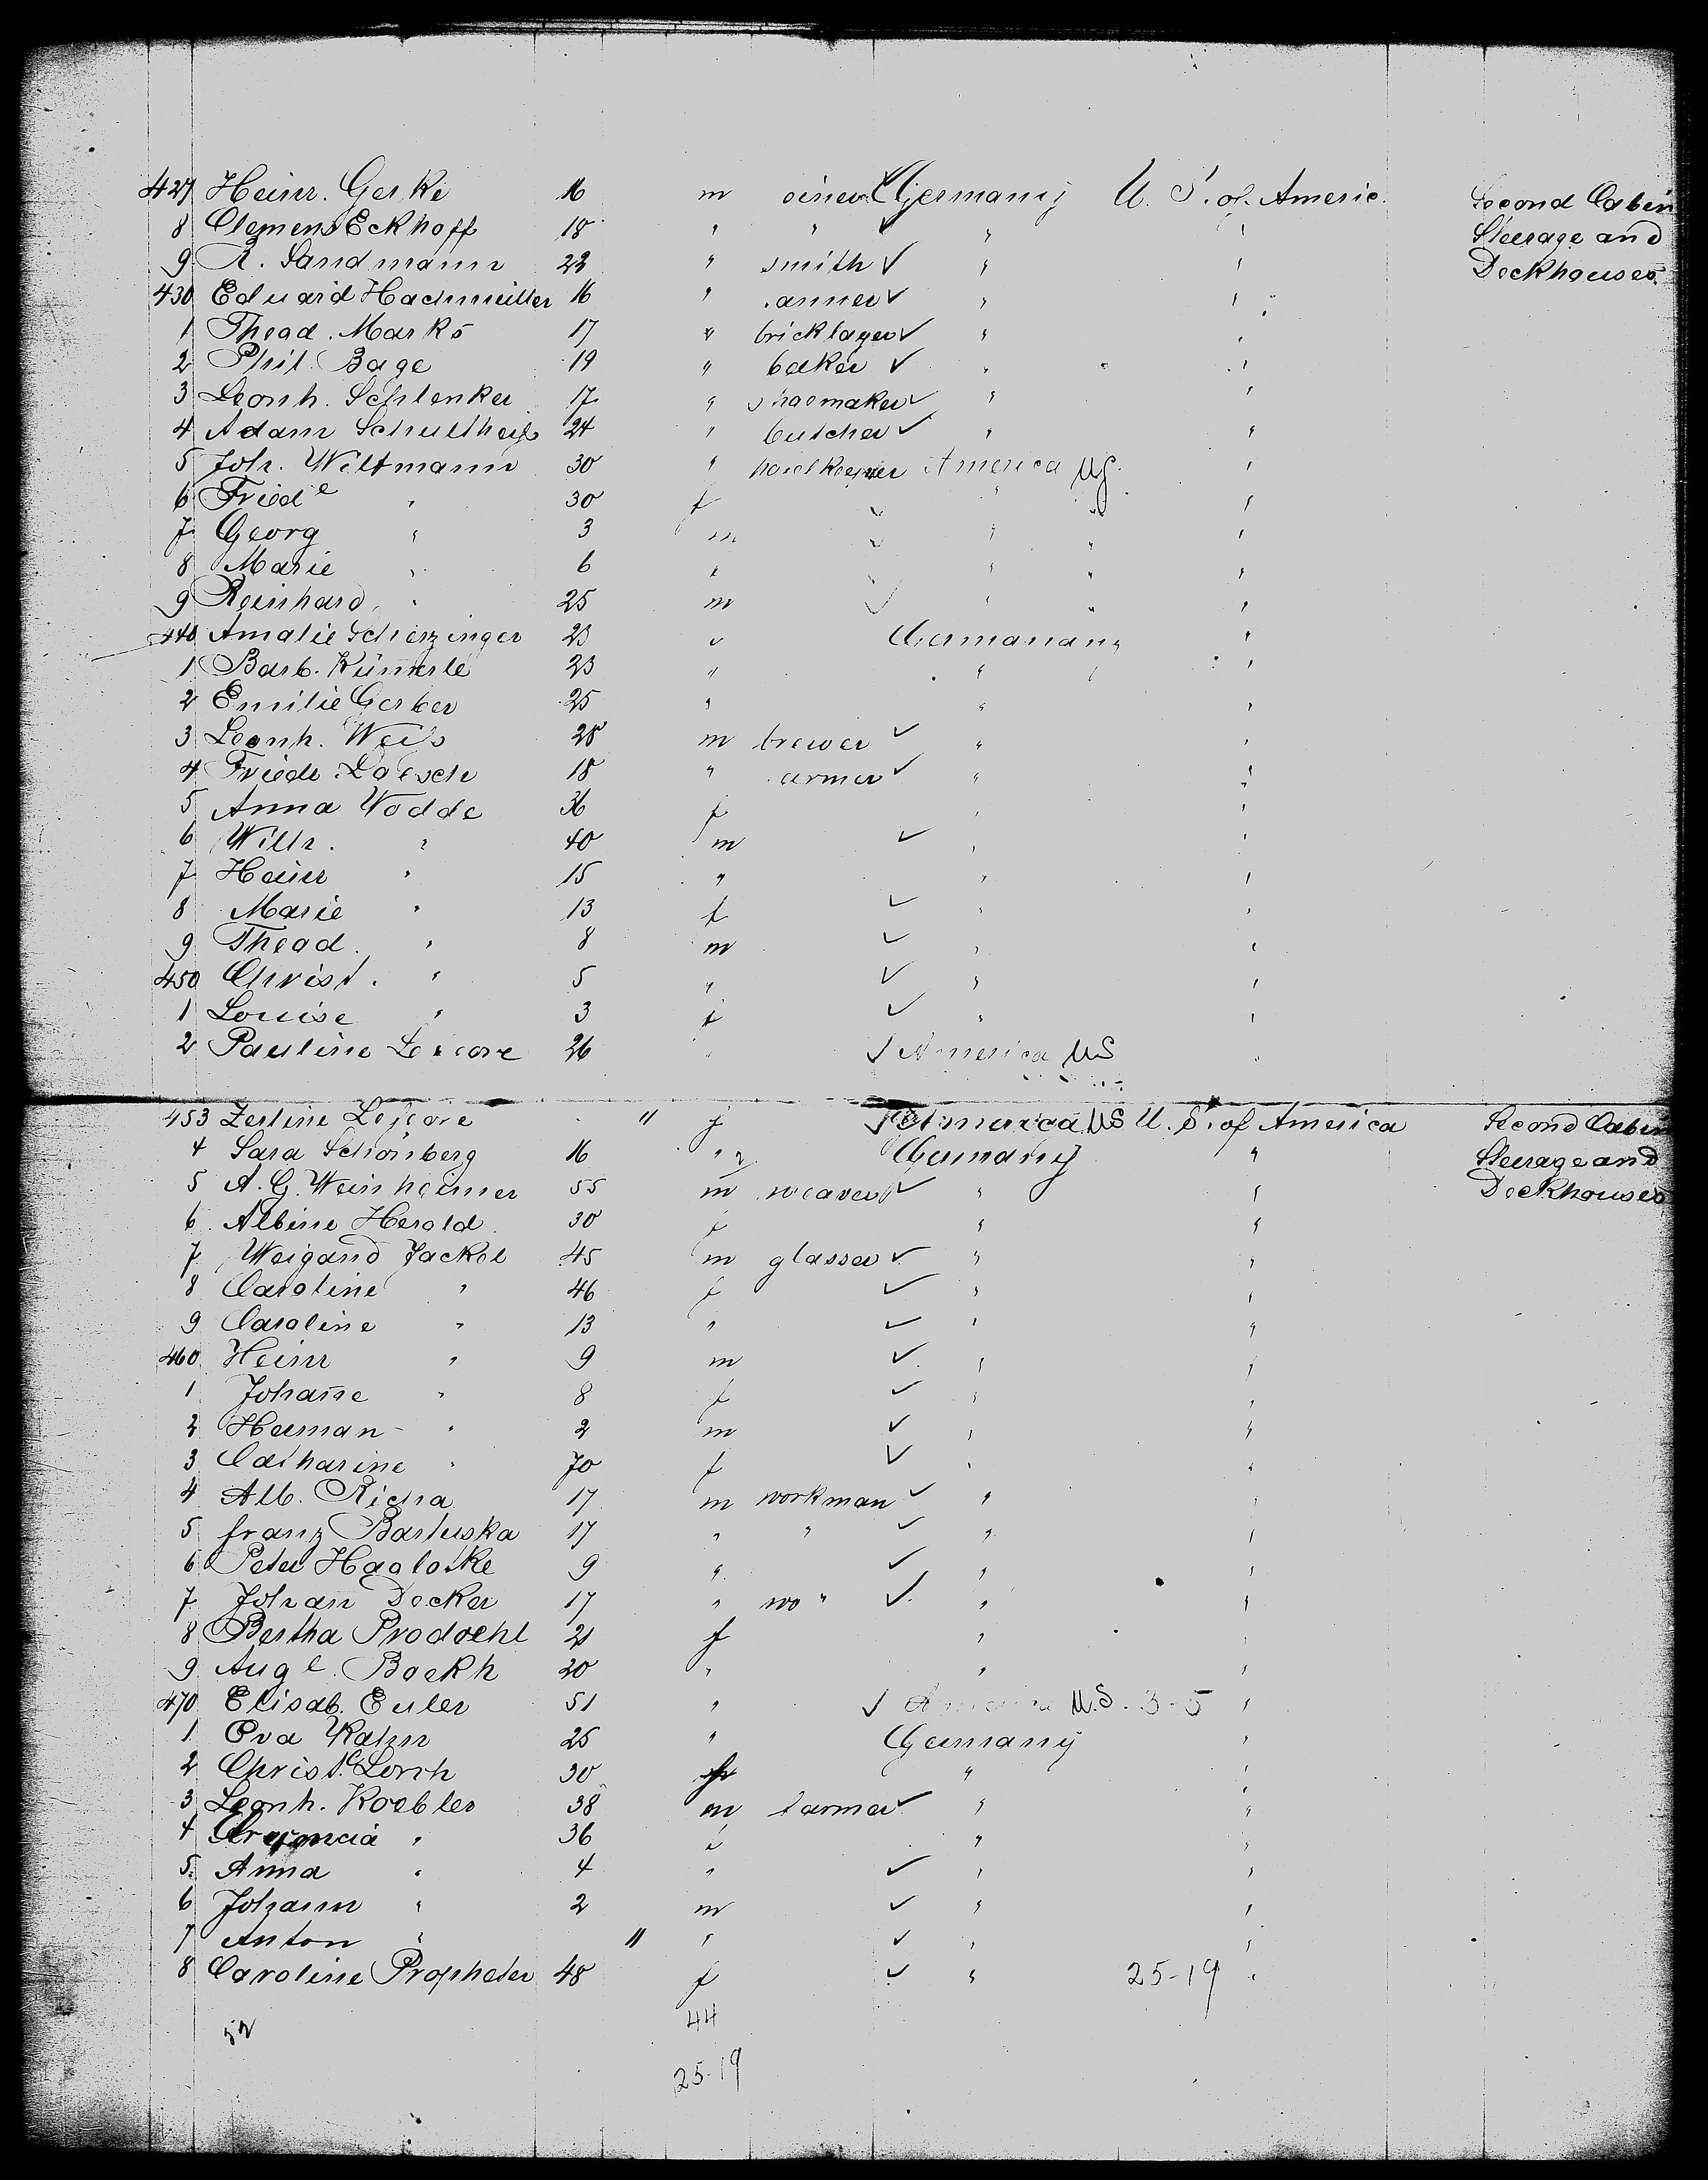 427 Heinr. Gerke 16 m oiner Germany U. S. of Americ. Second Cabin
8 Clemens Eckhoff 18 " " " " Steerage and
9 R. Sandmann 22 " smith " " Deckhouses
430 Eduard Hachmeister 16 " " "
1 Thead. Marks 17 " bricklayer " "
2 Phil. Bage 19 " baker " "
3 Leonh. Schlenker 17 " shoemaker " "
4 Adam Schultheiß 24 " butcher " "
5 Joh. Wiltmann 30 " America US "
6 Friedᵉ " 30 f " " "
7 Georg " 3 m " " "
8 Marie " 6 f " " "
9 Reinhard " 25 m " " "
440 Amalie Scherzinger 23 Germanany "
1 Barb. Kümerle 23 " " "
2 Emilie Gerber 25 " " "
3 Leonh. Weiß 28 m brewer " "
4 Friedr. Loesch 18 " armer " "
5 Anna Wodde 36 f " "
6 Wilh. " 40 m " "
7 Heinr " 15 " " "
8 Marie " 13 f " "
9 Thead. " 8 m " "
450 Christ. " 5 " " "
1 Louise " 3 f " "
2 Pauline 26 " America US "
453 Zerline " f America US U. S. of America Second Cabin
4 Sara Schönberg 16 " Germany " Steerage and
5 A. G. Weinheimer 55 m weaver " " Deckhouses
6 Albine Herold 30 f " "
7 Weigand Jackel 45 m glasser " "
8 Caroline " 46 f " "
9 Caroline " 13 " " "
460 Heinr " 9 m " "
1 Johan̄e " 8 f " "
2 Herman " 2 m " "
3 Catharine " 70 f " "
4 Alb. Richa 17 m workman " "
5 Franz Bartuska 17 " " " "
6 Peter Hagloske 9 " " "
7 Johan̄ Decker 17 " wo " " "
8 Bertha Prodoehl 21 f " "
9 Augᵉ. Boekh 20 " " "
470 Elisab. Euler 51 " America U.S. 3-5 "
1 Eva Kahn 25 " Germany "
2 Christᵉ Lorch 30 " "
3 Leonh. Koebler 38 m farmer " "
4 " 36 f " "
5 Anna " 4 " " "
6 Johann " 2 m " "
7 Anton " " " " "
8 Caroline Propheter 48 f " 25-19 "
52 44
25-19